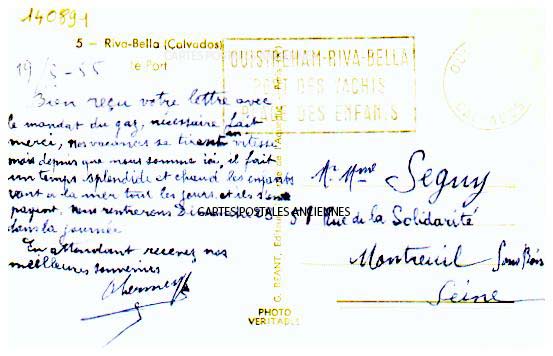 140891
5 — Riva-Bella (Calvados)
Le Port
19/8-55
Bien reçu votre lettre avec
le mandat du gaz, nécessaire fait
merci, nos vacances se tirent en vitesse
mais depuis que nous somme ici, il fait
un temps splendide et chaud les enfants
vont a la mer tous les jours et ils s'en
payent, Nous rentrerons Dimanche
dans la journée
En attendant recevez nos
meilleures souvenirs
CARTES POSTALES ANCIENNES
OUISTREHAM-RIVA-BELLA
PORT DES YACHTS
PLAGE DES ENFANTS
CALVADOS
Mr Mme Seguy
51 Rue de la Solidarité
Montreuil Sous Bois
Seine
PHOTO
VERITABLE